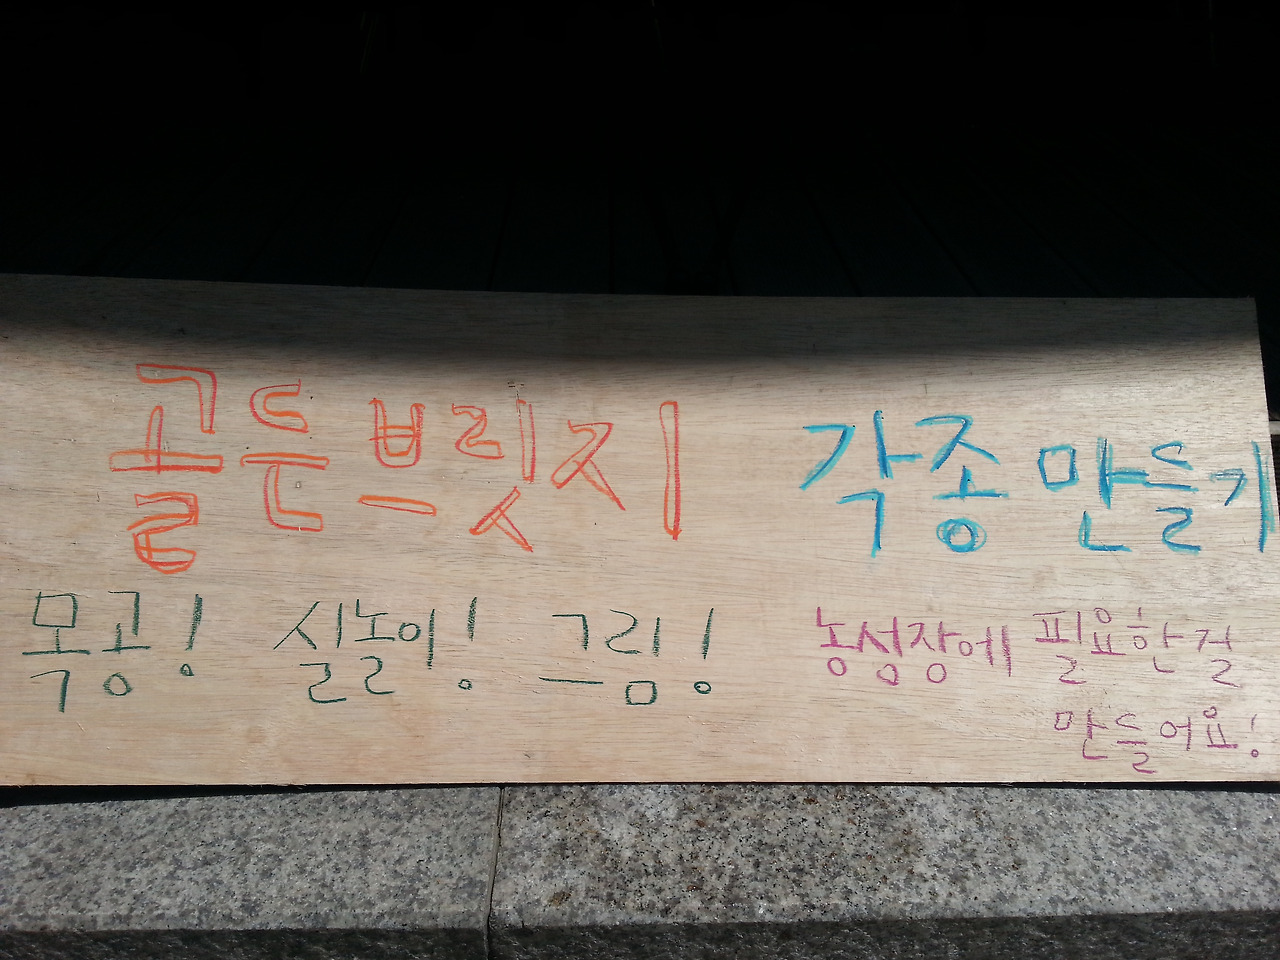 골든브릿지 각종 만들기
목공! 실놀이! 그림! 농성장에 필요한 걸
만들어요!